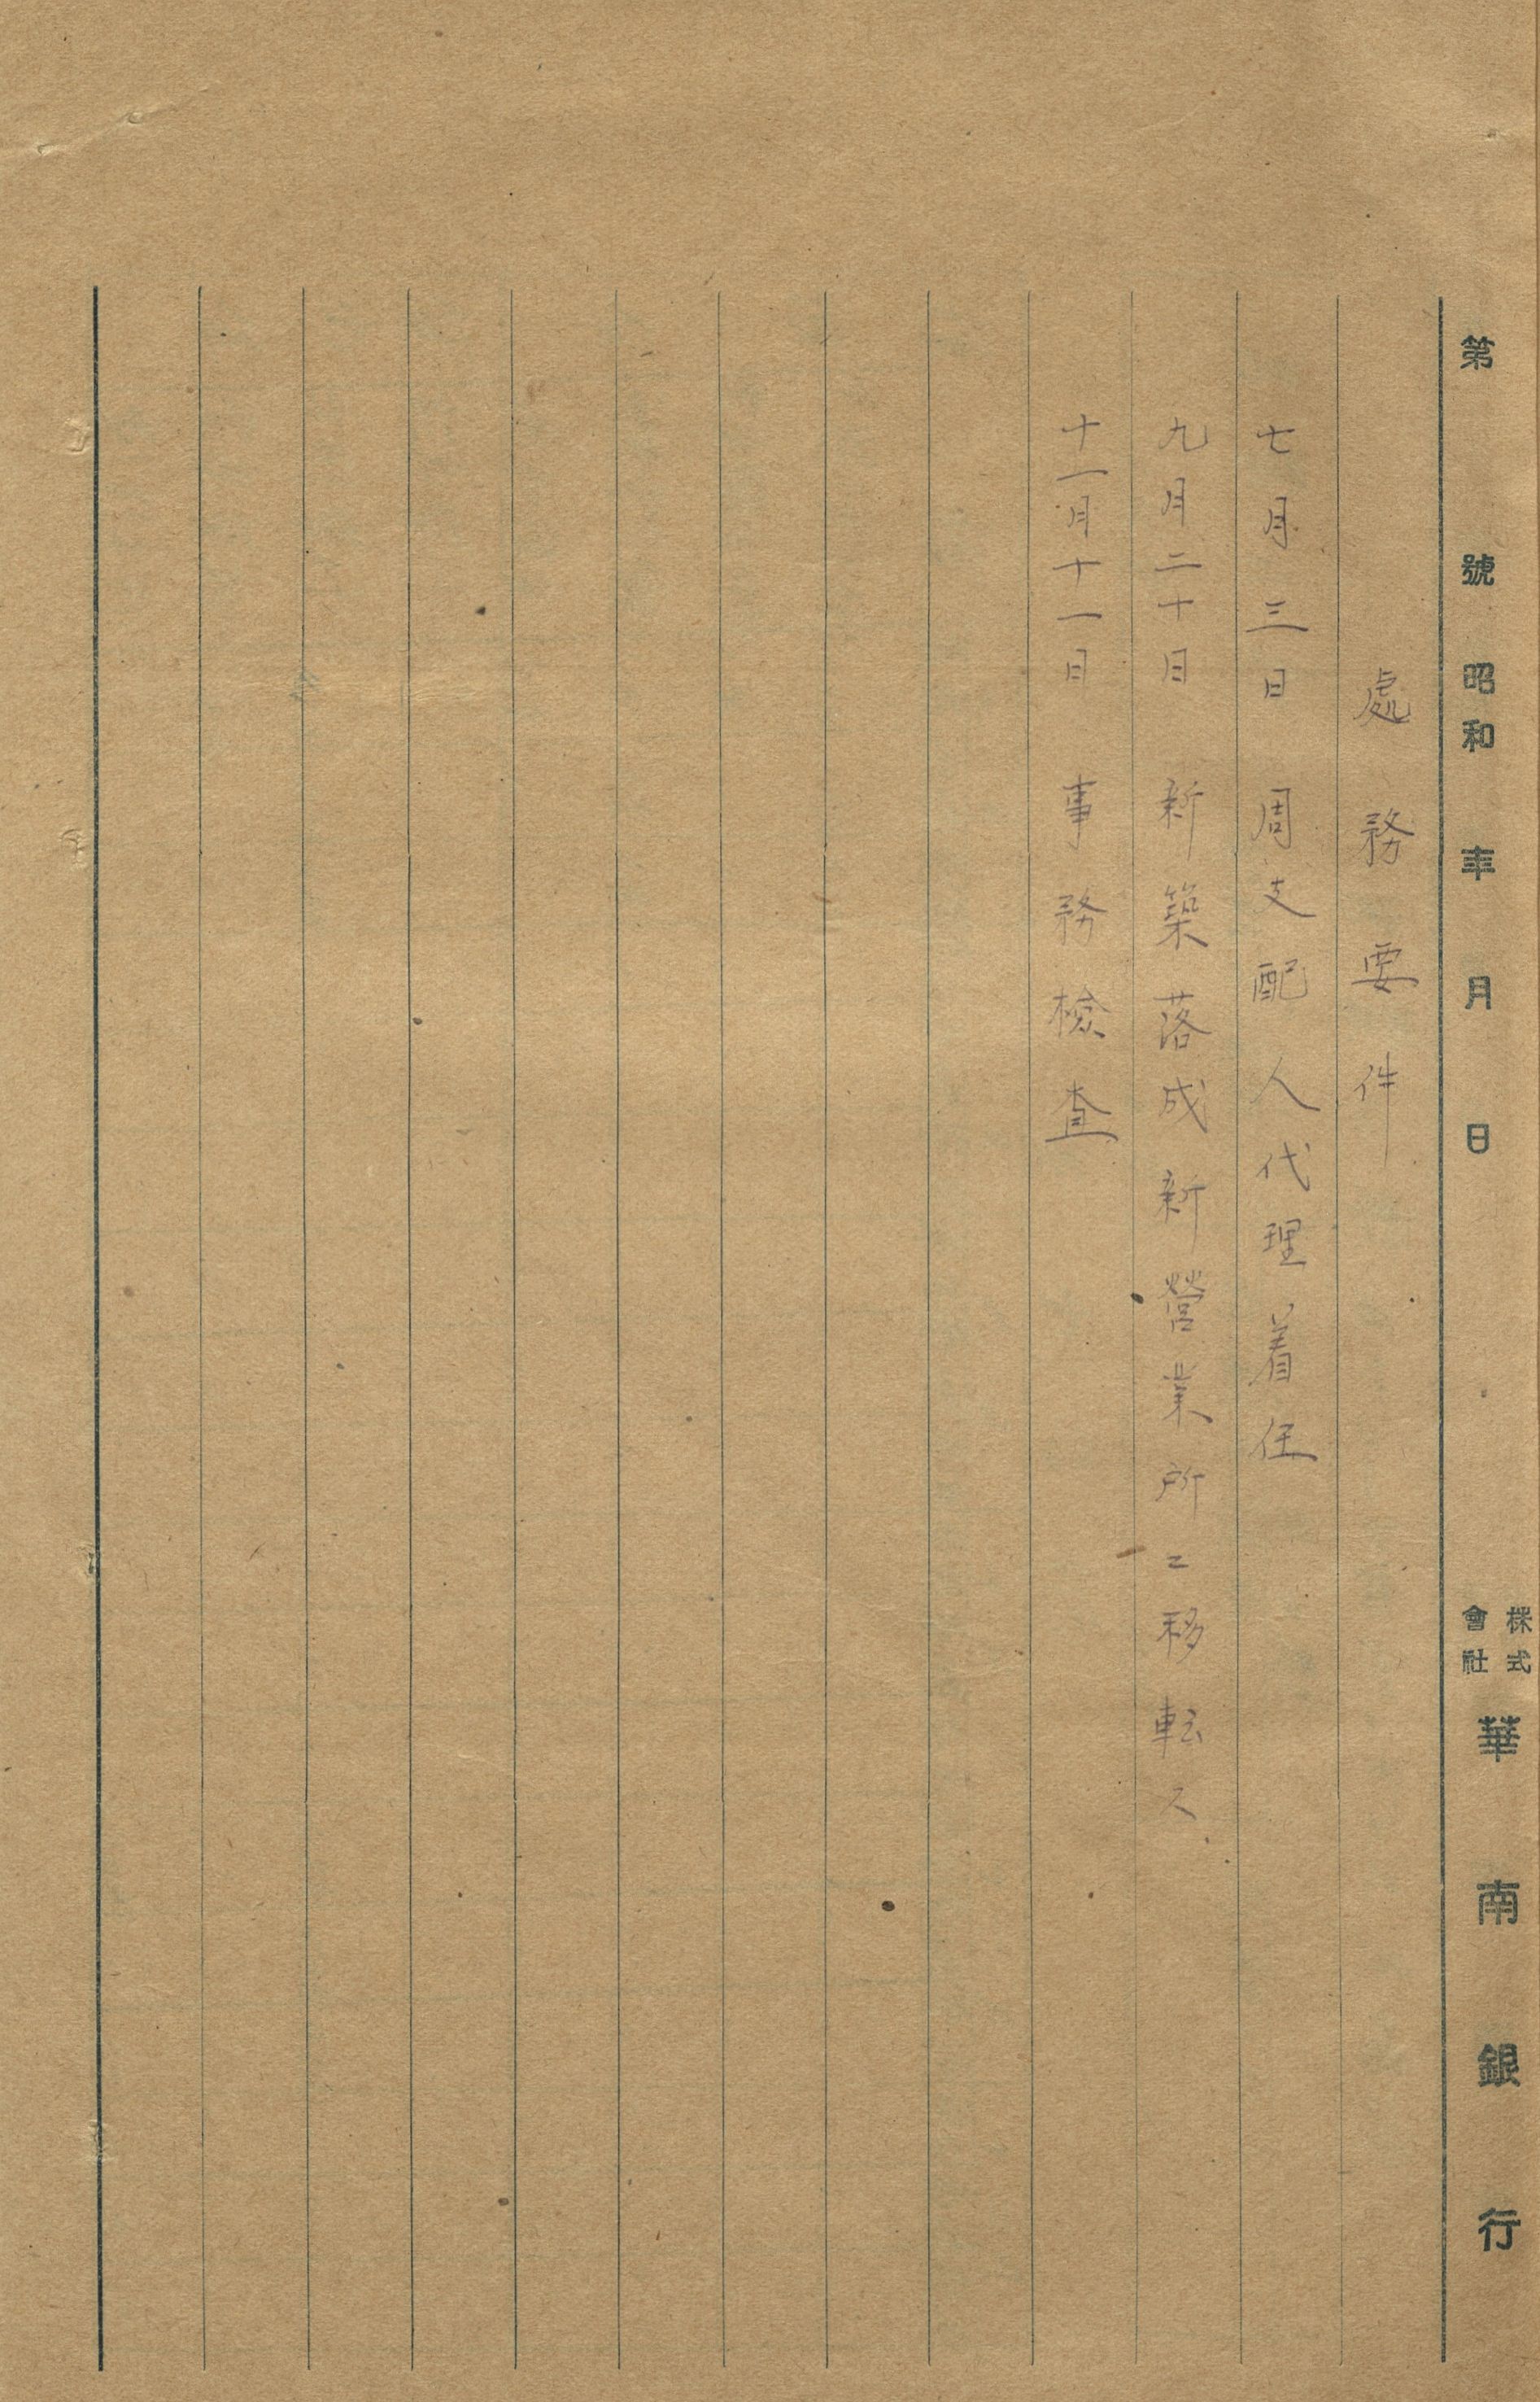 第 號 昭和 年 月 日 株式會社 華南銀行
處務要件
七月三日 周支配人代理着任
九月二十日 新築落成新營業所ニ移転ス
十一月十一日 事務檢查